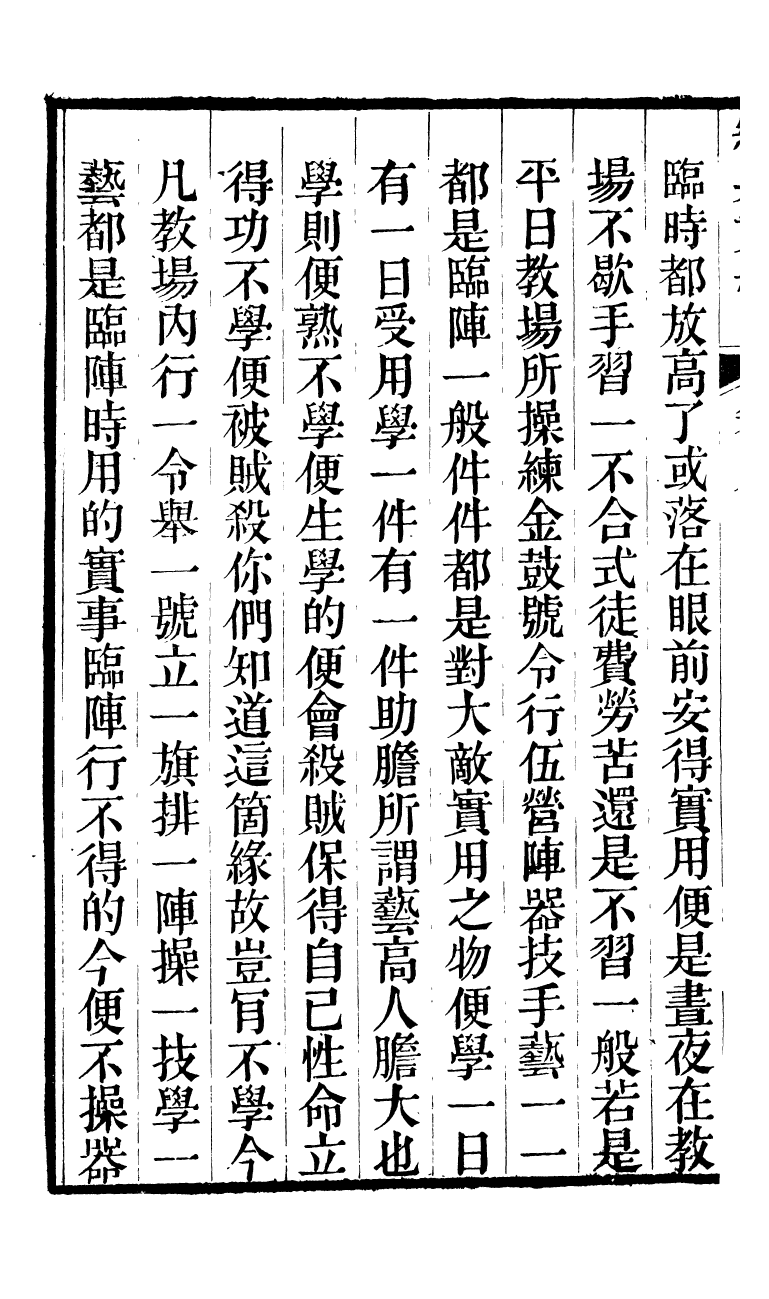 臨時都放高了或落在眼前安得實用便是晝夜在教
場不歇手習一不合式徒費勞苦還是不習一般若是
平日教場所操練金鼓號令行伍營陣器技手藝一一
都是臨陣一般件件都是對大敵實用之物便學一日
有一日受用學一件有一件助膽所謂藝高人膽大也
學則便熟不學便生學的便會殺賊保得自己性命立
得功不學便被賊殺你們知道這箇緣故豈肯不學今
凡教場內行一令舉一號立一旗排一陣操一技學一
藝都是臨陣時用的實事臨陣行不得的今便不操器